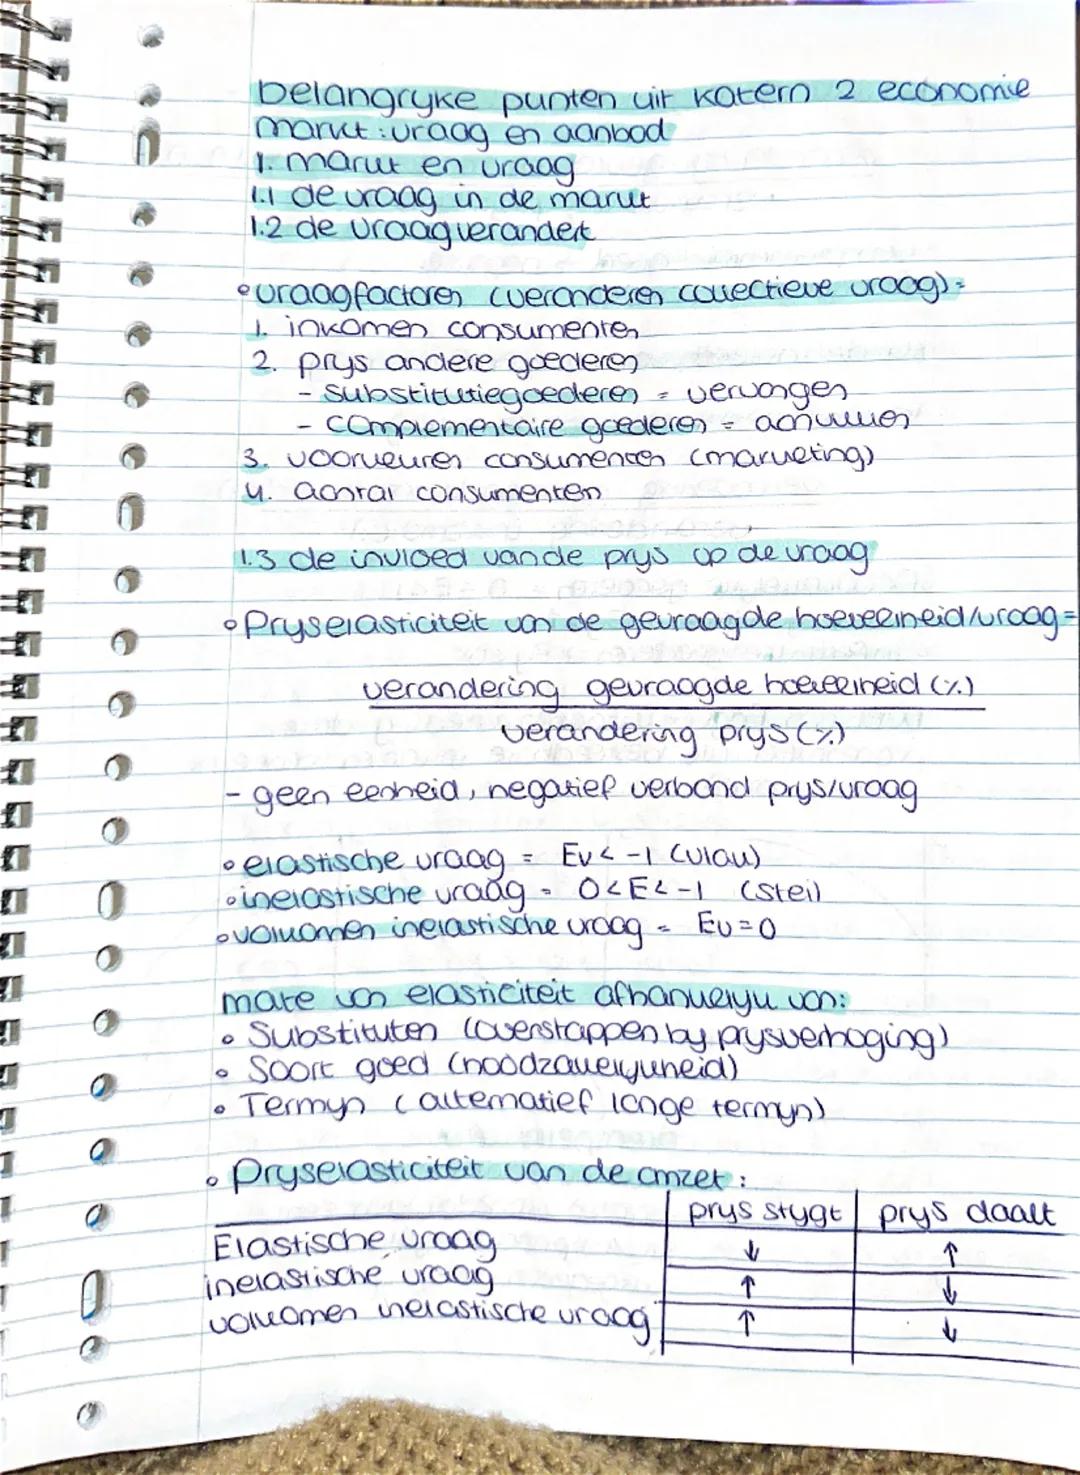 belangryke punten uit katern 2 economie
markt: vraag en aanbod
1. markt en vraag
1.1 de vraag in de markt
1.2 de vraag verandert
• vraagfactoren (veranderen collectieve vraag) =
1. inkomen consumenten
2. prys andere goederen
- substitutiegoederen = vervangen
- complementaire goederen = aanvullen
3. voorkeuren consumenten (marketing)
4. aantal consumenten
1.3 de invloed van de prys op de vraag
• Pryselasticiteit van de gevraagde hoeveelheid/vraag =
verandering gevraagde hoeveelheid (%)
verandering prys (%)
- geen eenheid, negatief verband prys/vraag
• elastische vraag = Ev < -1 (vlak)
• inelastische vraag = 0 < E < -1 (steil)
• volkomen inelastische vraag = Ev = 0
mate van elasticiteit afhankelyk van:
• Substituten (overstappen by prysverhoging)
• Soort goed (noodzakelykheid)
• Termyn (alternatief lange termyn)
• Pryselasticiteit van de omzet:
prys stygt | prys daalt
Elastische vraag ↓ ↑
inelastische vraag ↑ ↓
volkomen inelastische vraag ↑ ↓